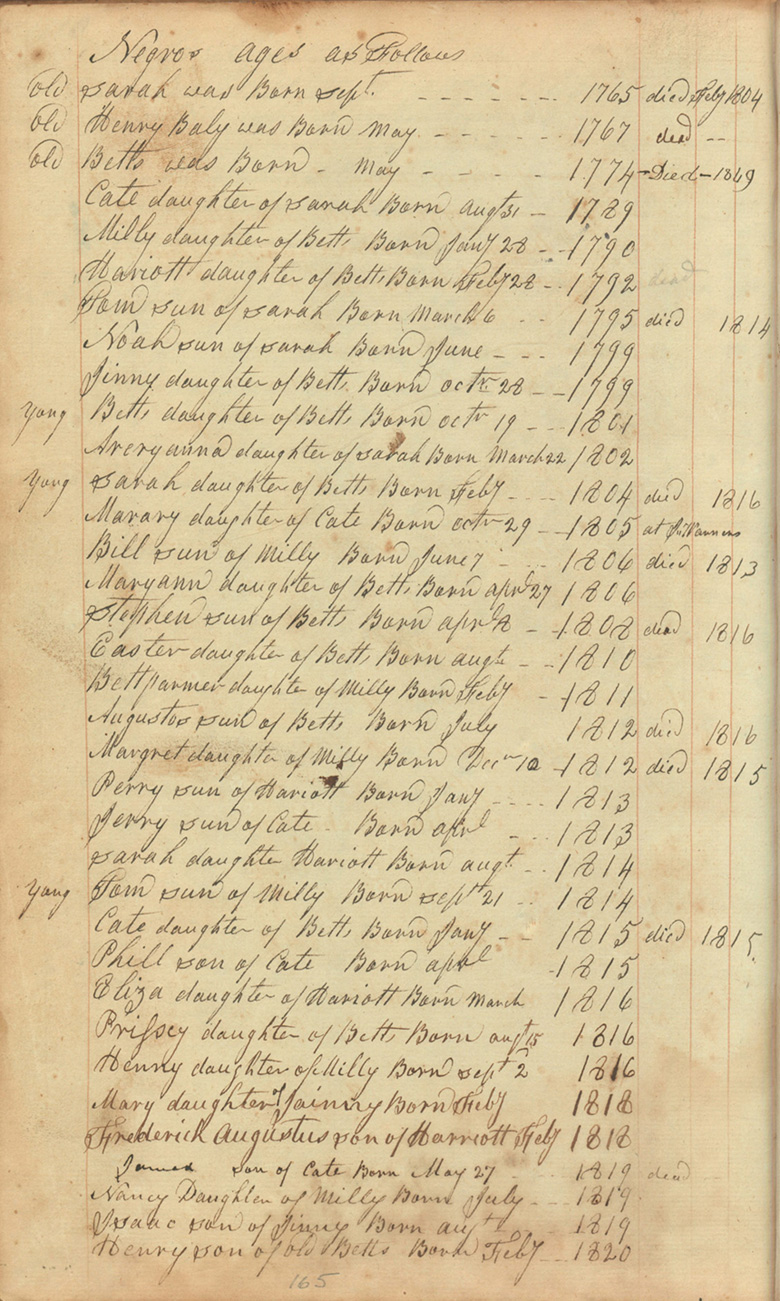 Negros ages as Follows
old Sarah was Born Sept. - - - - - - 1765 died Feby 1804
old Henry Baly was Born May - - - - - 1767 dead --
old Betts was Born - May - - - - - 1774 - Died - 1869
Cate daughter of Sarah Born augt 31 - 1789
Milly daughter of Betts Born Jany 28 - - 1790
Hariott daughter of Betts Born Feby 28 - - 1792 dead
Tom sun of Sarah Born March 6 - - 1795 died 1814
Noah sun of Sarah Born June - - - 1799
Jinny daughter of Betts Born octr 28 - - 1799
Yong Betts daughter of Betts Born octr 19 - - 1801
Averyanna daughter of Sarah Born March 22 1802
Yong Sarah daughter of Betts Born Feby - - - 1804 died 1816
Marary daughter of Cate Born octr 29 - - 1805 at
Bill sun of Milly Born June 7 - - - 1806 died 1813
Maryann daughter of Betts Born aprl 27 1806
Stephen sun of Betts Born aprl 8 - - 1808 dead 1816
Easter daughter of Betts Born augt - - 1810
Bettparmer daughter of Milly Born Feby - 1811
Augustos sun of Betts Born July 1812 died 1816
Margret daughter of Milly Born Decr 12 - 1812 died 1815
Perry sun of Hariott Born Jany - - - - 1813
Jerry sun of Cate - Born aprl - - - 1813
Sarah daughter Hariott Born augt - - 1814
Yong Tom sun of Milly Born Sept 21 - - 1814
Cate daughter of Betts Born Jany - - 1815 died 1815
Phill son of Cate Born aprl - 1815
Eliza daughter of Hariott Born March 1816
Prissey daughter of Betts Born augt 15 1816
Henny daughter of Milly Born Sept 2 1816
Mary daughter of Jainny Born Feby 1818
Frederick Augustus son of Harriott Feby 1818
James son of Cate Born May 27 1819 dead
Nancy Daughter of Milly Born July - - 1819
Isaac son of Jinny Born augt - - 1819
Henry son of old Betts Born Feby - - 1820
165